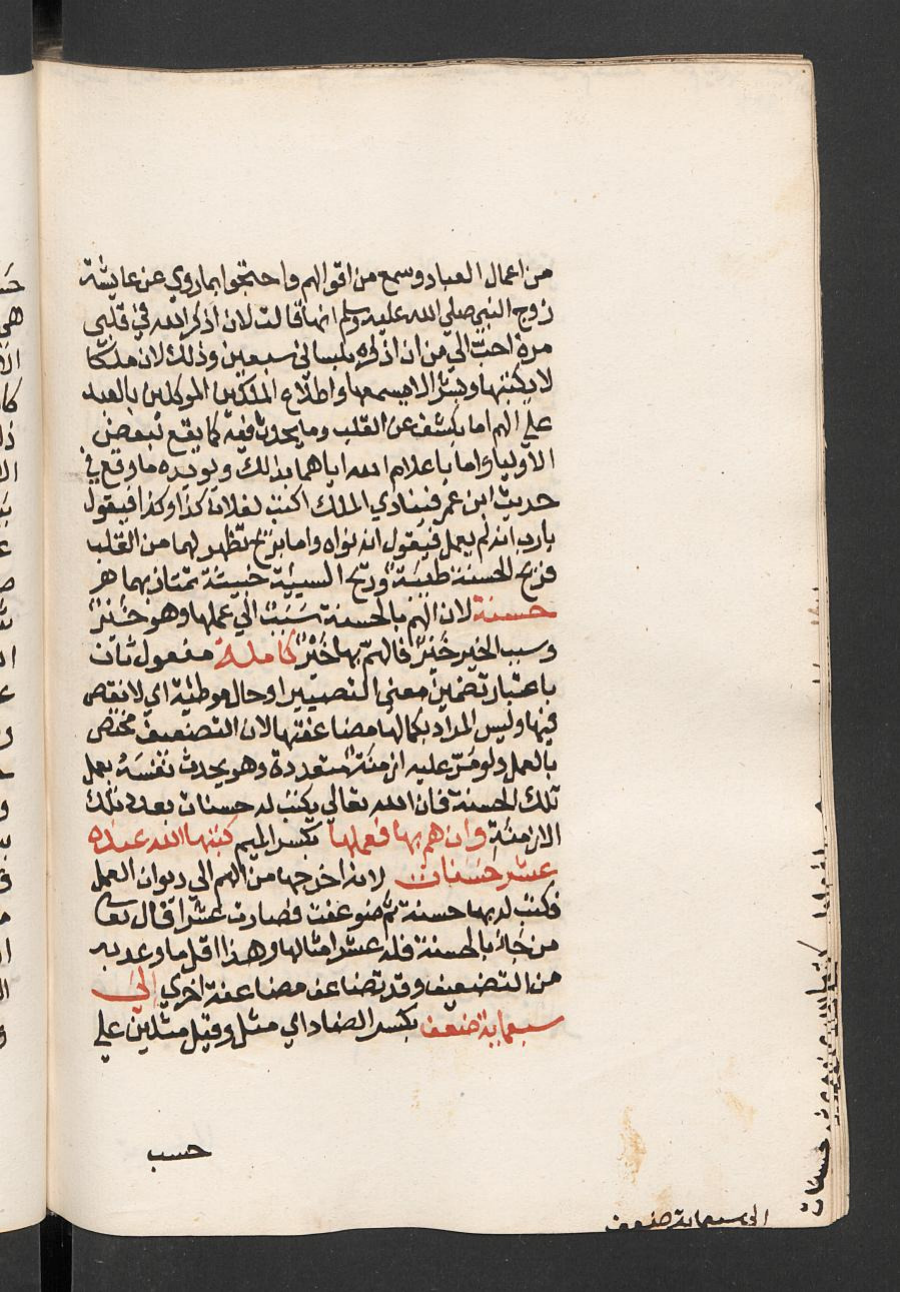 من اعمال العباد وسمع من اقوالهم واحتجوا بما روي عن عايشة
زوج النبي صلي الله عليه وسلم انها قالت لان اذكر الله في قلبي
مرة احبّ الي من ان اذكره بلساني سبعين وذلك لان ملكا
لا يكتبها وبشرا لا يسمعها واطلاع الملكين الموكلين بالعبد
علي الهم اما بكشف عن القلب وما يحدث فيه كما يقع لبعض
الاولياء واما باعلام الله اياهما بذالك ويويده ما وقع في
حديث ابن عمر فينادي الملك اكتب لفلان كذا وكذا فيقول
يارب انه لم يعمل فيقول انه نواه واما بريح تظهر لهما من القلب
فريح الحسنة طيبة وريح السيئة خبيثة تمتاز بهما هر
حسنة لان الهم بالحسنة سَبَبٌ الي عملها وهو خَيْرٌ
وسبب الخير خَيْرٌ فالهمّ بها خَيْرٌ كاملة مفعول ثان
باعتبار تضمين معني التصيير او حال موطئة اي لا نقص
فيها وليس المراد بكمالها مضاعفتها لان التضعيف مختص
بالعمل ولو مَرّ عليه ازمنة متعددة وهو يحدث نفسَهُ بعمل
تلك الحسنة فان الله تعالي يكتب له حسنات بعدد تلك
الازمنة وان هم بها فعملها بكسر الميم كتبها الله عنده
عشر حسنات لانه اخرجها من الهم الي ديوان العمل
فكتب له بها حسنة ثم ضوعفت فصارت عشرا قال تعالي
من جاء بالحسنة فله عشر امثالها وهذا اقل ما وعد به
من التضعيف وقد تضاعف مضاعفة اخري الي
سبعماية ضعف بكسر الضاد اي مثل وقيل مثلين علي
حسب
الي سبعماية ضعف
حسنات